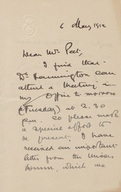 6 May, 1912
Dear Mr Peet,
I find that
Dr Hannington can
attend a meeting in
my office 2 morrow
(Tuesday) at 2.30
p.m. So please make
a special effort to
be present. I have
received an important
letter from the
which we